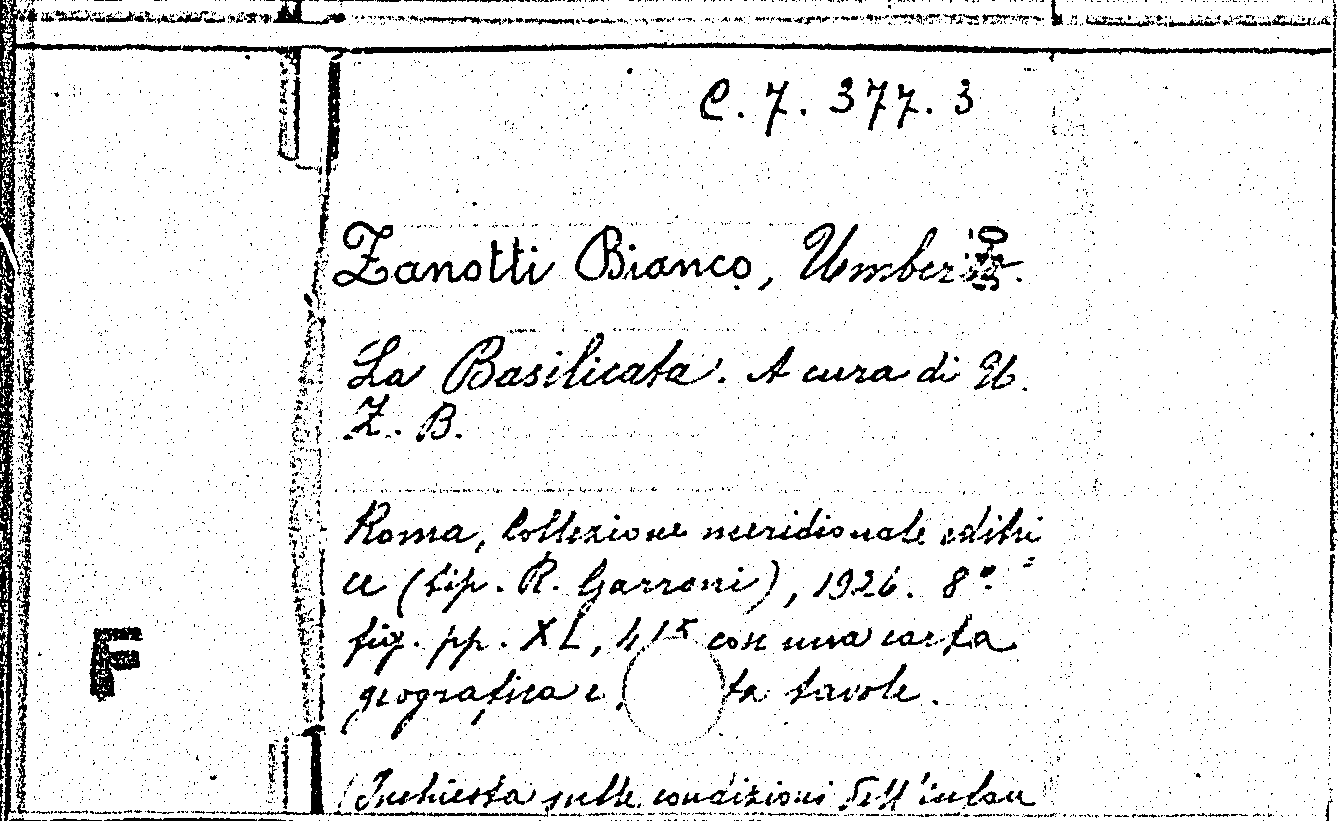 C. 7. 377. 3
Zanotti Bianco, Umberto.
La Basilicata. A cura di U.
Z. B.
Roma, Collezione meridionale editri=
ce (tip. R. Garroni), 1926. 8°.
fig. pp. XL, con una carta
geografica e tavole.
F
(Inchiesta sulle condizioni dell'infan